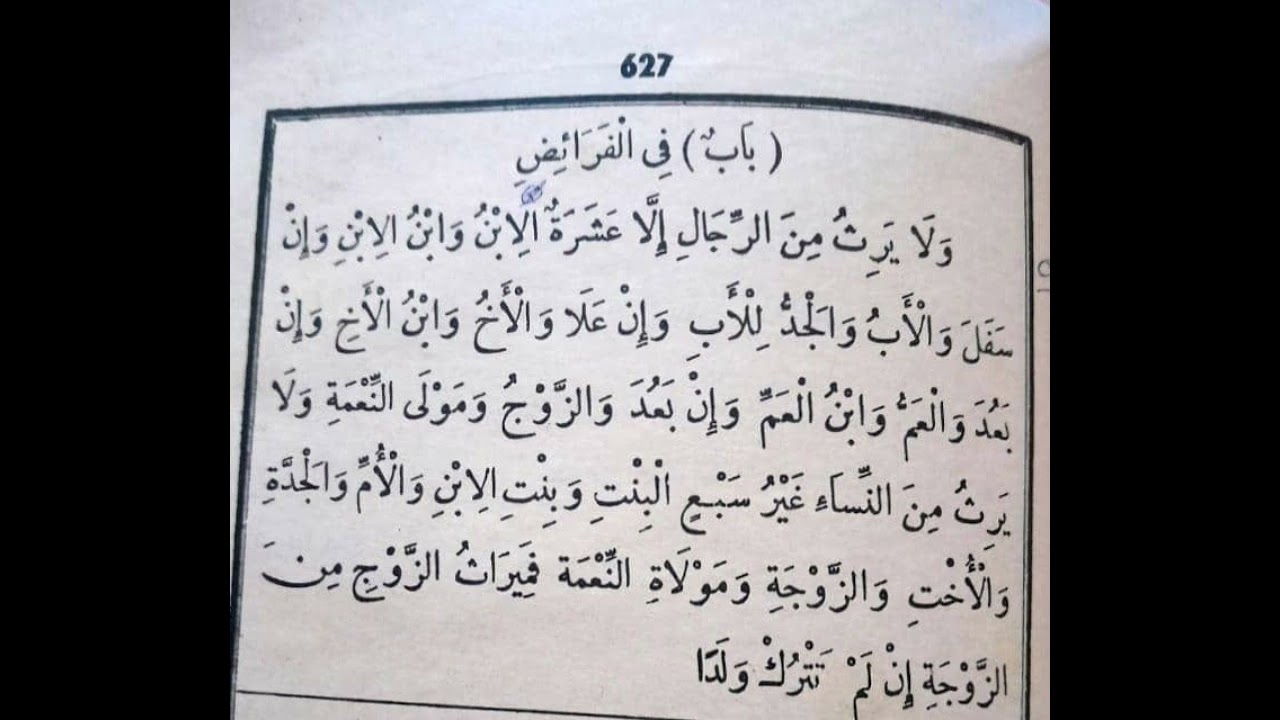 627
( بَابٌ ) فِى الْفَرَائِضِ
وَلَا يَرِثُ مِنَ الرِّجَالِ إِلَّا عَشَرَةٌ الِابْنُ وَابْنُ الِابْنِ وَإِنْ
سَفَلَ وَالْأَبُ وَالْجَدُّ لِلْأَبِ وَإِنْ عَلَا وَالْأَخُ وَابْنُ الْأَخِ وَإِنْ
بَعُدَ وَالْعَمُّ وَابْنُ الْعَمِّ وَإِنْ بَعُدَ وَالزَّوْجُ وَمَوْلَى النِّعْمَةِ وَلَا
يَرِثُ مِنَ النِّسَاءِ غَيْرُ سَبْعٍ الْبِنْتِ وَبِنْتِ الِابْنِ وَالْأُمِّ وَالْجَدَّةِ
وَالْأُخْتِ وَالزَّوْجَةِ وَمَوْلَاةِ النِّعْمَة فَمِيرَاثُ الزَّوْجِ مِنَ
الزَّوْجَةِ إِنْ لَمْ تَتْرُكْ وَلَدًا